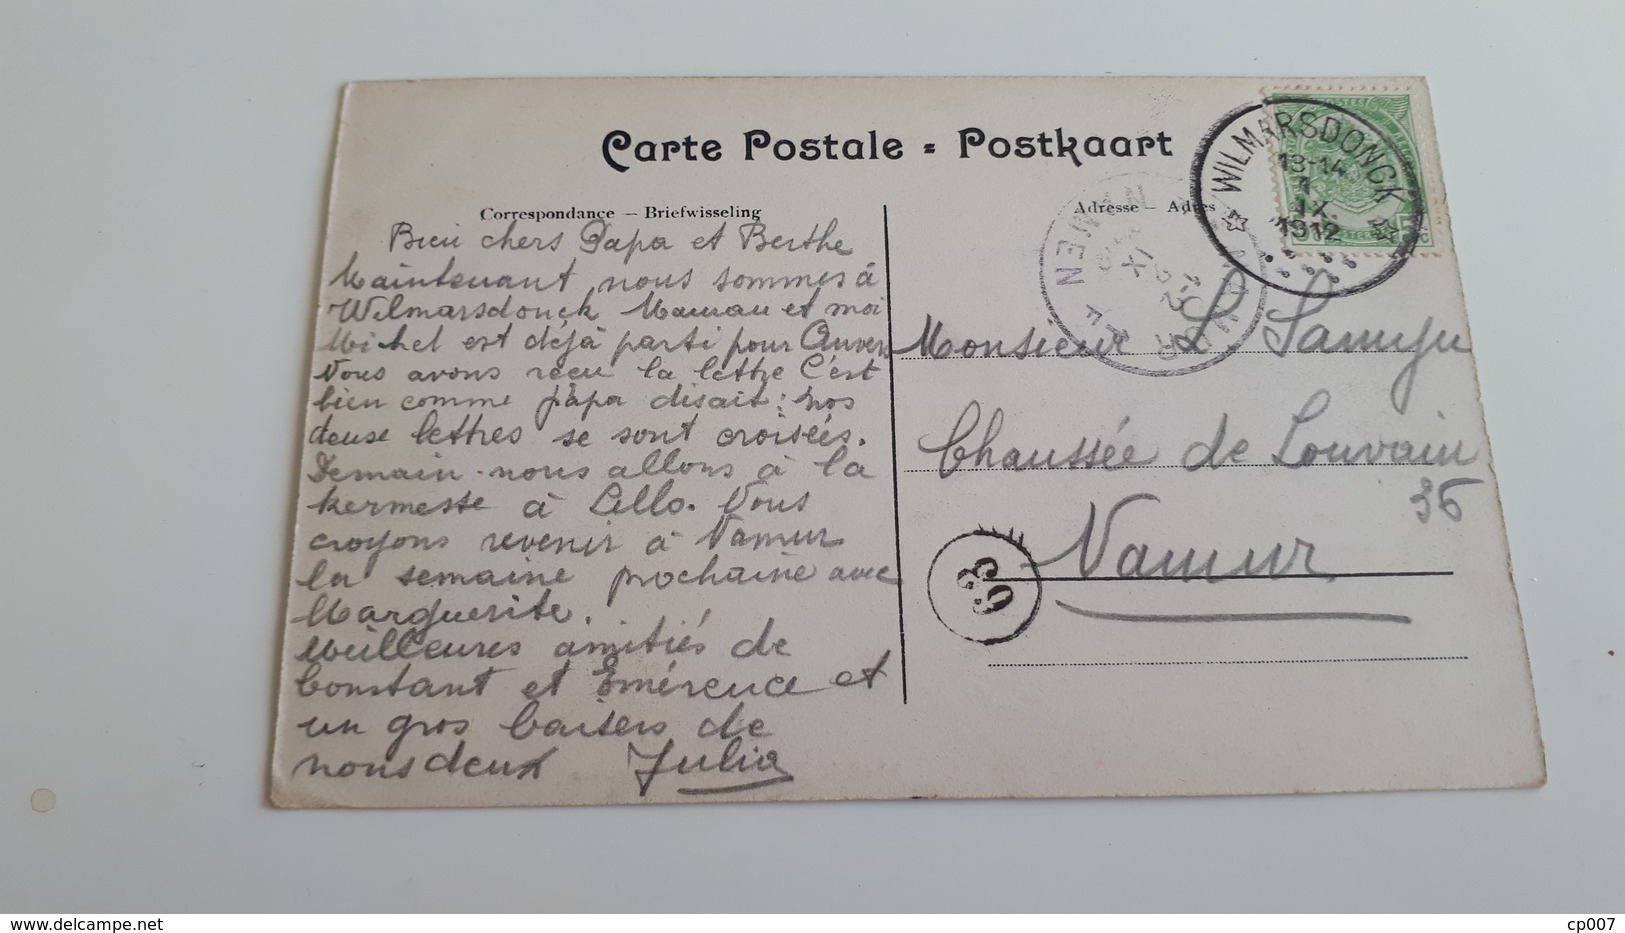 Carte Postale = Postkaart
Correspondance – Briefwisseling
Adresse – Adres
WILMARSDONCK
13-14
1
IX
1912
POSTES
NAMUR
NAMEN
IX
Bien chers Papa et Berthe
Maintenant nous sommes à
Wilmarsdonck Maman et moi
Michel est déjà parti pour Anvers
Nous avons reçu la lettre C'est
bien comme papa disait: nos
deuse lettres se sont croisées.
Demain nous allons à la
kermesse à Lillo. Nous
croyons revenir à Namur
la semaine prochaine avec
Marguerite.
Meilleures amitiés de
Constant et Emérence et
un gros baisers de
nous deux Julia
Monsieur L
Chaussée de Louvain
36
Namur
63
delcampe.net
cp007